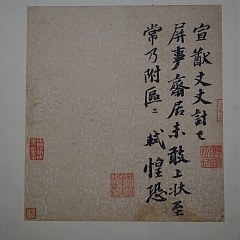 宣猷丈丈計已
屏事齋居未敢上狀至
常乃附區區軾惶恐